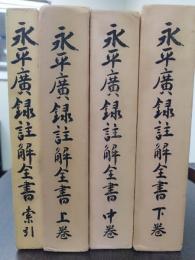 永平廣録註解全書 索引
永平廣録註解全書 上巻
永平廣録註解全書 中巻
永平廣録註解全書 下巻